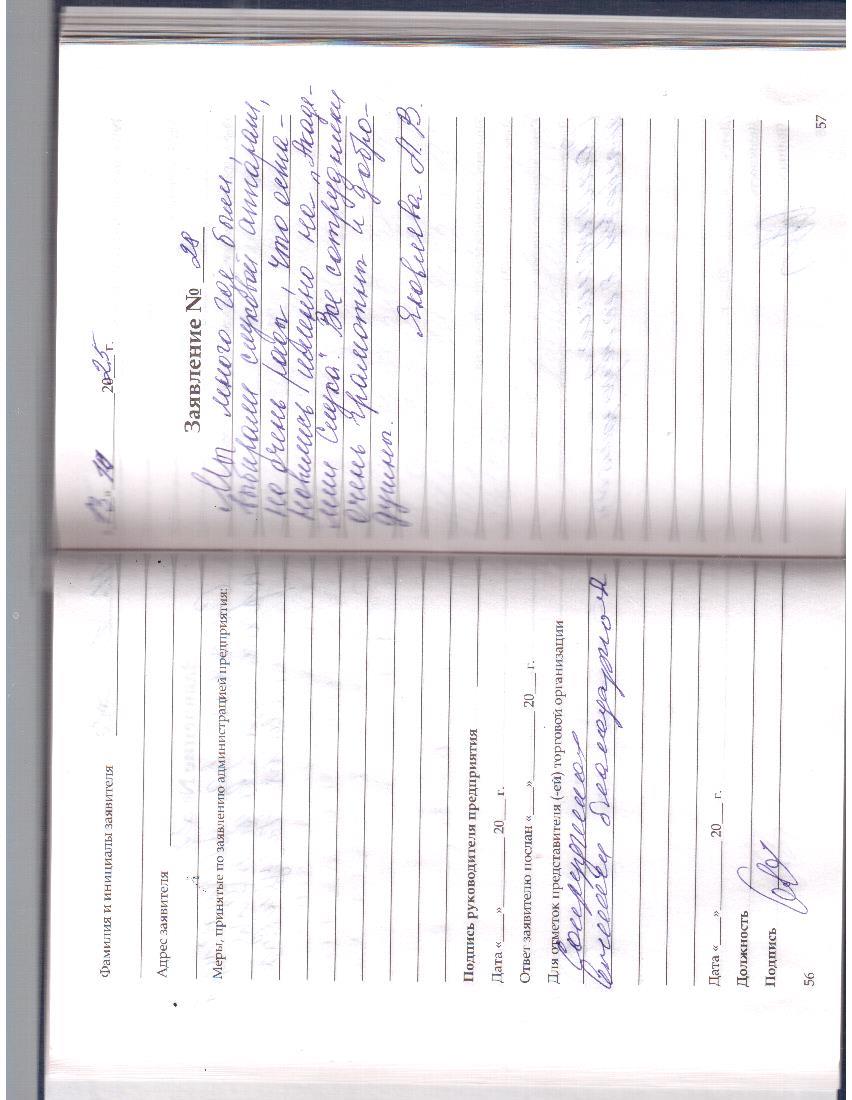 Фамилия и инициалы заявителя
Адрес заявителя
Меры, принятые по заявлению администрацией предприятия:
Подпись руководителя предприятия
Дата «___» ______ 20___ г.
Ответ заявителю послан «___» ______ 20___ г.
Для отметок представителя (-ей) торговой организации
Сотрудникам
вынесена благодарность
Дата «___» ______ 20___ г.
Должность
Подпись
56
13 » 10 2025 г.
Заявление № 28
Мы много где были,
выбирали слуховой аппарат,
но очень рады, что оста-
новились именно на „Акаде-
мии слуха". Все сотрудники
очень грамотны и добро-
душны.
Яковлева А. В.
57